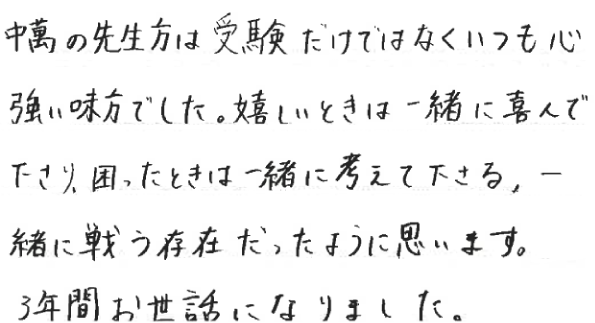 中萬の先生方は受験だけではなくいつも心
強い味方でした。嬉しいときは一緒に喜んで
下さり、困ったときは一緒に考えて下さる、一
緒に戦う存在だったように思います。
3年間お世話になりました。